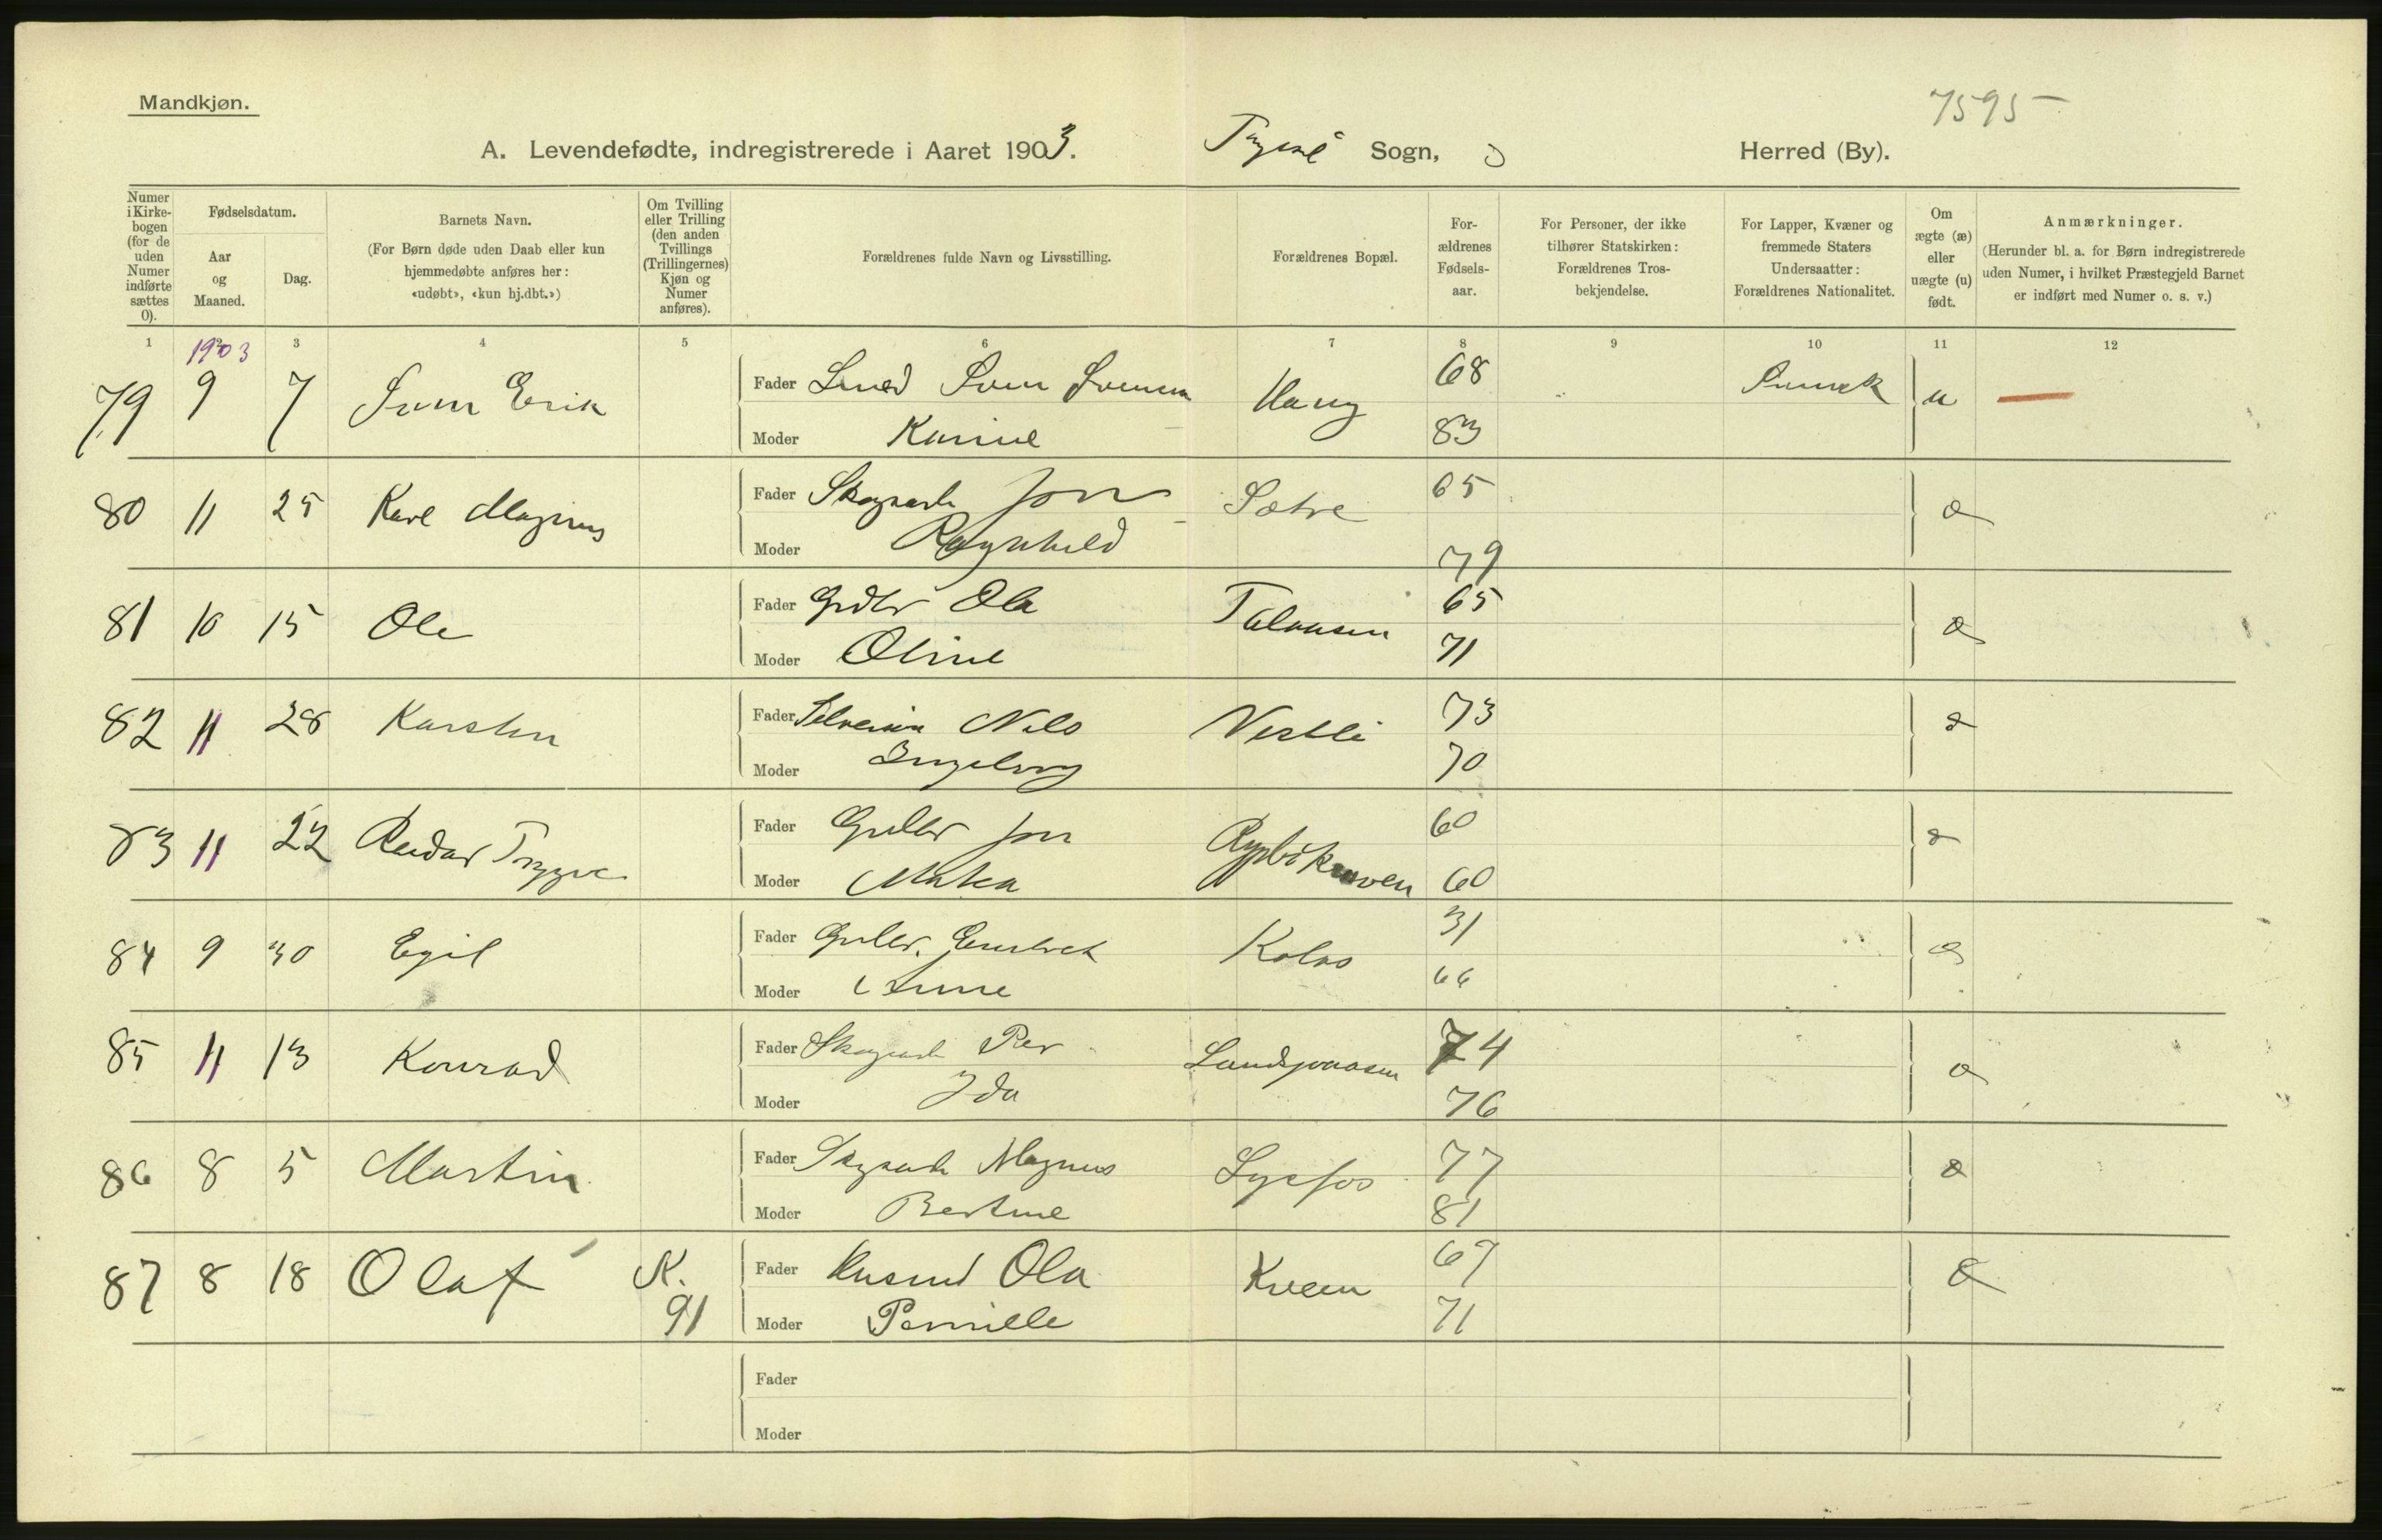 Mandkjøn.
7595
A. Levendefødte, indregistrerede i Aaret 1903. Trysil Sogn, Herred (By).
Numer i Kirke-bogen (for de uden Numer indførte sættes 0).
Fødselsdatum.
Aar og Maaned.
Dag.
Barnets Navn.
(For Børn døde uden Daab eller kun hjemmedøbte anføres her: «udøbt», «kun hj.dbt.»)
Om Tvilling eller Trilling (den anden Tvillings (Trillingernes) Kjøn og Numer anføres).
Forældrenes fulde Navn og Livsstilling.
Forældrenes Bopæl.
For-ældrenes Fødsels-aar.
For Personer, der ikke tilhører Statskirken: Forældrenes Tros-bekjendelse.
For Lapper, Kvæner og fremmede Staters Undersaatter: Forældrenes Nationalitet.
Om ægte (æ) eller uægte (u) født.
Anmærkninger.
(Herunder bl. a. for Børn indregistrerede uden Numer, i hvilket Præstegjeld Barnet er indført med Numer o. s. v.)
1 2 3 4 5 6 7 8 9 10 11 12
1903
79 9 7 Sven Erik Fader Smed Sven Svensen Haug 68 Svensk u
Moder Karine 83
80 11 25 Karl Magnus Fader Skogsarb Jon Sætre 65 æ
Moder Ragnhild 79
81 10 15 Ole Fader Ola 65 æ
Moder Oline 71
82 11 28 Karsten Fader Selveier Nils Vestli 73 æ
Moder Ingeborg 70
83 11 22 Reidar Trygve Fader Jon 60 æ
Moder Mathea 60
84 9 30 Egil Fader Kolos 31 æ
Moder Anne 66
85 11 13 Konrad Fader Skogsarb Per 74 æ
Moder Ida 76
86 8 5 Martin Fader Skogsarb Magnus Lysfos 77 æ
Moder Bertine 81
87 8 18 Olaf K. 91 Fader Husmd Ola Kveen 67 æ
Moder Pernille 71
Fader
Moder